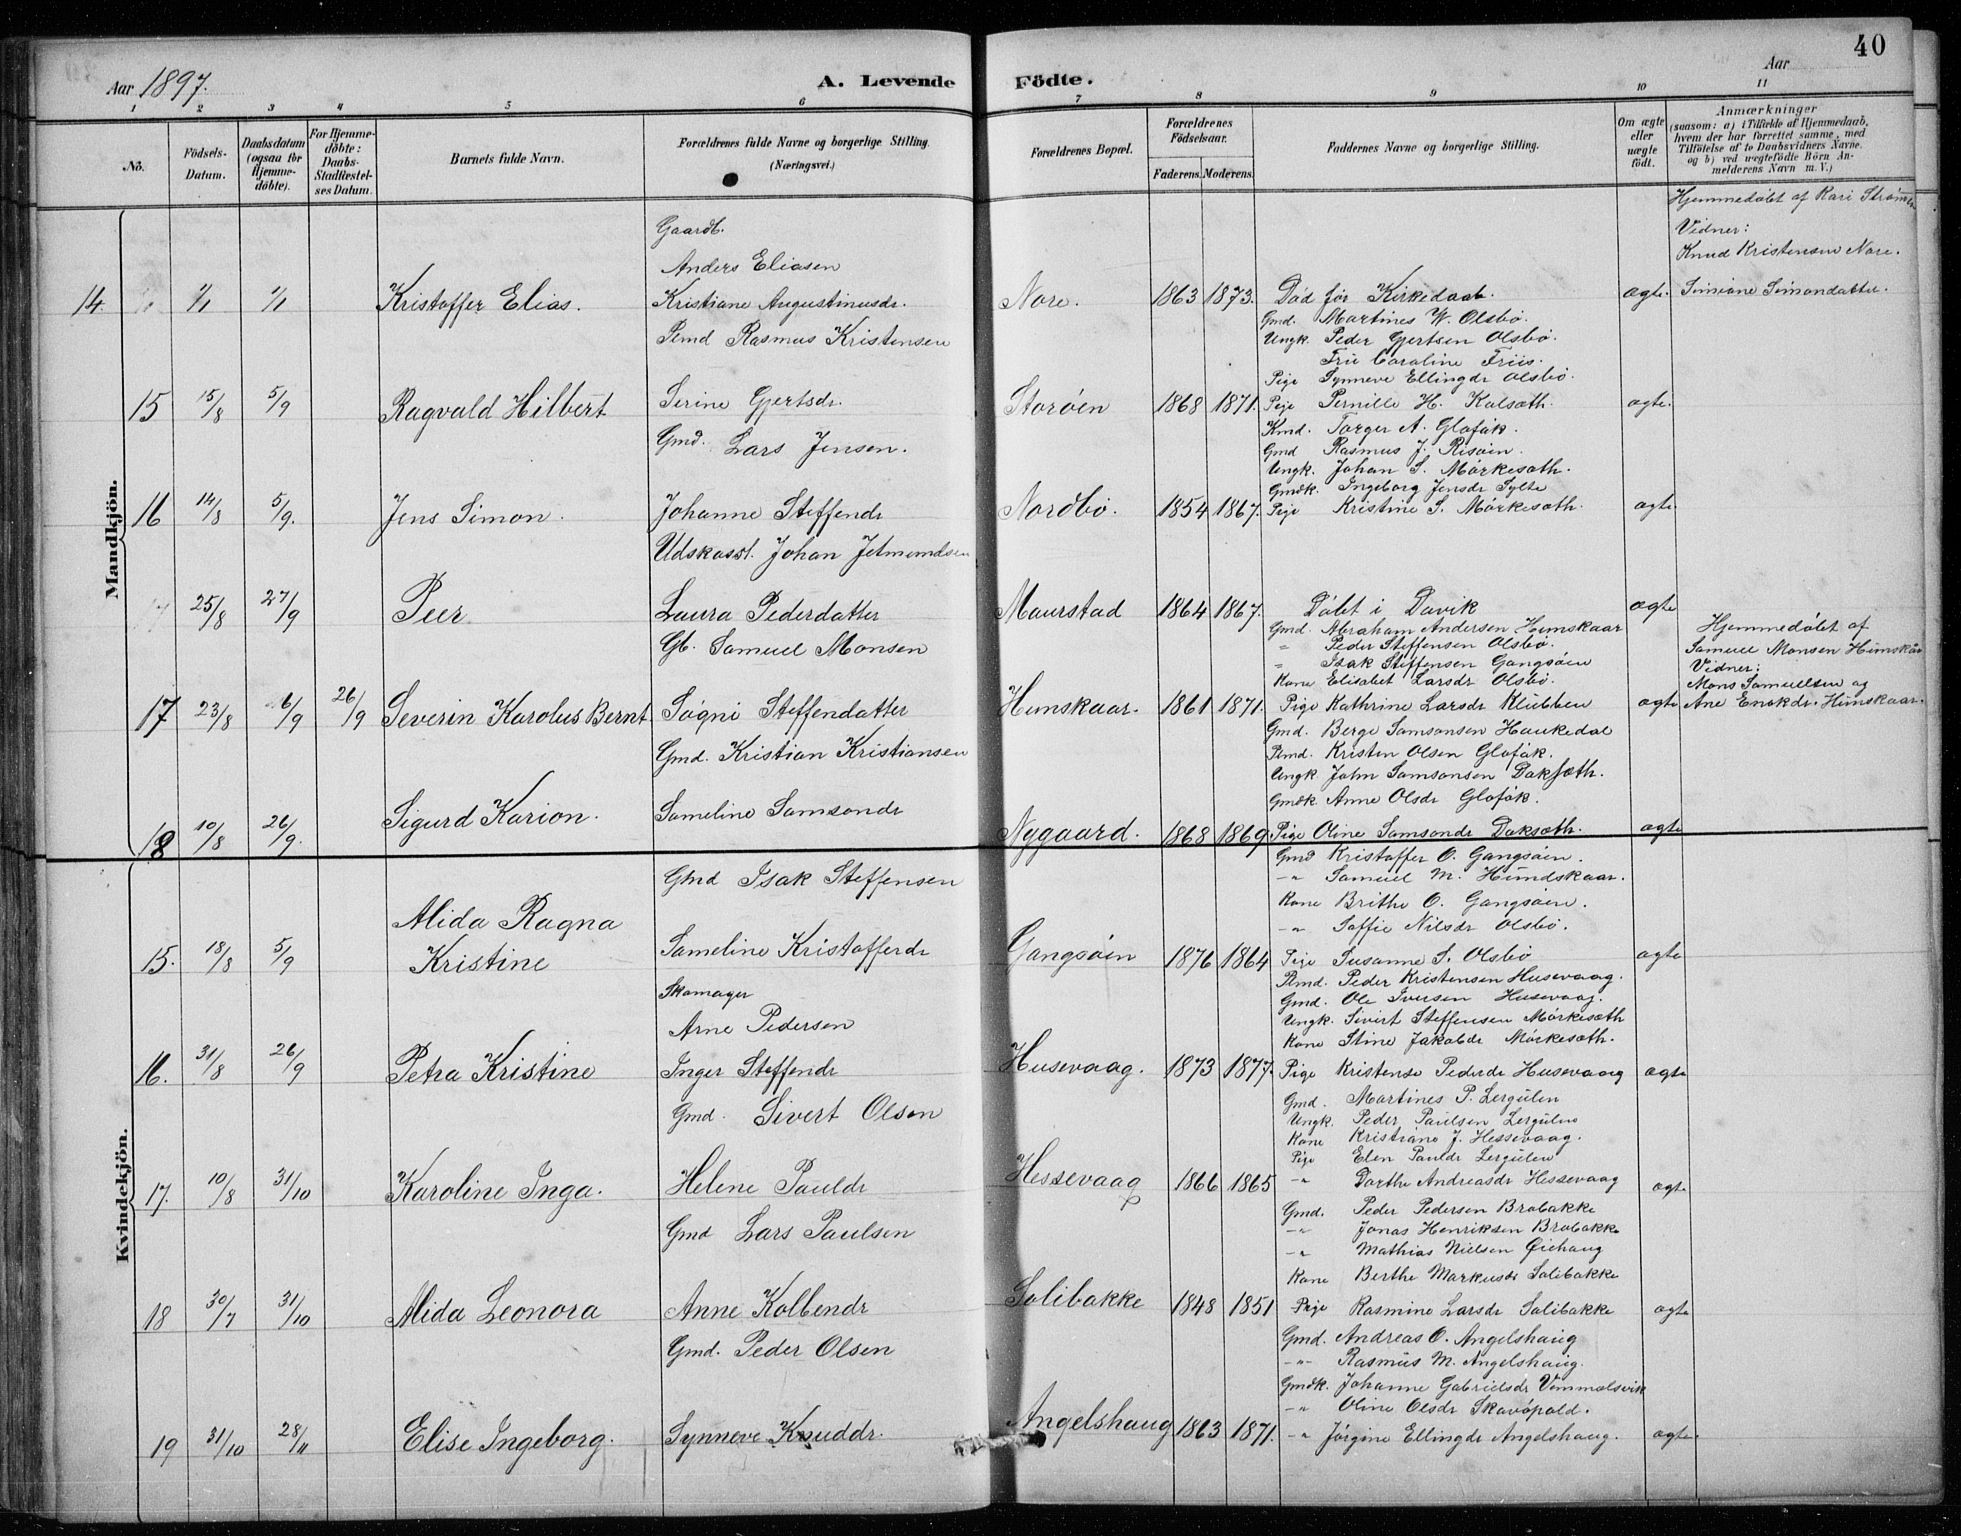 40
Aar 1897.
A. Levende Födte.
Aar
1 2 3 4 5 6 7 8 9 10 11
No.
Födsels-Datum.
Daabsdatum (ogsaa for Hjemme-döbte).
For Hjemme-döbte: Daabs-Stadfæstel-ses Datum.
Barnets fulde Navn.
Forældrenes fulde Navne og borgerlige Stilling. (Næringsvei.)
Forældrenes Bopæl.
Forældrenes Födselsaar.
Faderens. Moderens.
Faddernes Navne og borgerlige Stilling.
Om ægte eller uægte födt.
Anmærkninger
(saasom: a) i Tilfælde af Hjemmedaab, hvem der har forrettet samme, med Tilföielse af to Daabsvidners Navne. og b) ved uægtefödte Börn An-melderens Navn m. V.)
Mandkjön.
Gaardb.
Anders Eliasen
14. 1/1 1/1 Kristoffer Elias. Kristiane Augustinusdr. Nore. 1863 1873. Död før Kirkedaab. ægte.
Hjemmedøbt af Kari
Vidner:
Knud Kristensen Nore.
Simiane Simondatter.
Plmd Rasmus Kristensen
Gmd. Martines W. Olsbö.
Ungk. Peder Gjertsen Olsbö.
Fru Caroline Friis.
Pige Synneve Ellingdr Olsbö.
15 15/8 5/9 Ragvald Hilbert Serine Gjertsdr. Storöen 1868 1871. Pige Pernille H. Kalsæth. ægte.
Gmd. Lars Jensen.
Kmd. Torger A. Glofåk.
Gmd Rasmus J. Risöen.
Ungk. Johan S. Mörkesæth.
Gmdk. Ingeborg Jensdr Sylte
16 14/8 5/9. Jens Simon. Johanne Steffendr Nordbö. 1854 1867. Pige Kristine S. Mörkesæth. ægte.
Udskasst. Johan Jetmundsen
25/8 27/9 Peer Laura Pederdatter Maurstad 1864 1867. Döbt i Davik ægte
Gb. Samuel Monsen
Gmd. Abraham Andersen Humskaar
" Peder Steffensen Olsbö.
" Isak Steffensen Gangsöen
Kone Elisabet Larsdr Olsbö.
17 23/8 6/9 26/9 Severin Karolus Bernt Sögni Steffendatter Humskaar. 1861 1871. Pige Kathrine Larsdr Klubben ægte
Hjemmedöbt af
Samuel Monsen Humskår
Vidner:
Mons Samuelsen og
Ane Enokdr. Humskaar.
Gmd. Kristian Kristiansen
Gmd. Berge Samsonsen Haukedal
Plmd. Kristen Olsen Glofåk.
Ungk John Samsonsen Daksæth.
Gmdk Anne Olsdr Glofåk.
18 10/8 26/9. Sigurd Karion. Sameline Samsondr Nygaard. 1868 1869. Pige Oline Samsondr Daksæth. ægte
Kvindekjön.
Gmd Isak Steffensen
Gmd Kristoffer O. Gangsöen.
-"- Samuel M. Hundskaar.
Kone Brithe O. Gangsöen.
-"- Soffie Nilsdr Olsbö.
15. 18/8 5/9 Alida Ragna Kristine Sameline Kristofferdr Gangsöin 1876 1864 Pige Susanne S. Olsbö ægte
Skomager
Arne Pedersen
Plmd. Peder Kristensen Husevaag.
Gmd. Ole Iversen Husevaag.
Ungk. Sivert Steffensen Mörkesæth
Kone Stine Jakobdr Mörkesæth.
16. 31/8 26/9 Petra Kristine Inger Steffendr Husevaag. 1873 1877. Pige Kristense Pederdr Husevaag ægte
Gmd. Sivert Olsen
Gmd. Martines P. Lergulen
Ungk. Peder Paulsen Lergulen
Kone Kristiane J. Hessevaag.
Pige Elen Pauldr Lergulen
17. 10/8 31/10 Karoline Inga. Helene Pauldr Hessevaag 1866 1865 -"- Dorthe Andreasdr Hessevaag ægte
Gmd Lars Paulsen
Gmd. Peder Pedersen Brobakke
-"- Jonas Henriksen Brobakke
-"- Mathias Nielsen
Kone Berthe Markusdr Solibakke
18 30/7 31/10 Alida Leonora Anne Kolbendr Solibakke 1848 1851 Pige Rasmine Larsdr Solibakke ægte
Gmd. Peder Olsen
Gmd. Andreas O. Angelshaug
-"- Rasmus M. Angelshaug.
Gmdk. Johanne Gabrielsdr Vemmelsvik
-"- Oline Olsdr Skavöpold.
19 31/10 28/11 Elise Ingeborg. Synneve Knuddr. Angelshaug 1863 1871. -"- Jörgine Ellingdr Angelshaug. ægte.